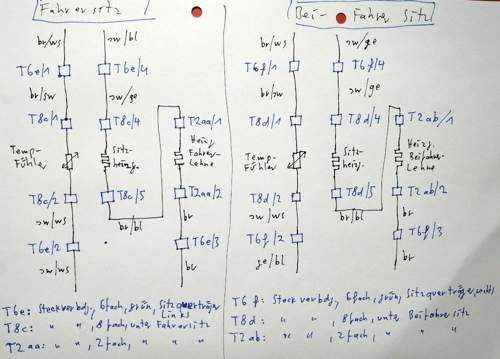 Fahrersitz
Bei-Fahrer Sitz
br/ws
sw/bl
br/ws
sw/ge
T6e/1
T6e/4
T6f/1
T6f/4
br/sw
sw/ge
br/sw
sw/ge
T8c/1
T8c/4
T2aa/1
T8d/1
T8d/4
T2ab/1
Temp-
Fühler
Sitz-
heizg.
Heizg
Fahrer-
Lehne
Temp-
Fühler
Sitz-
heizg.
Heizg.
Beifahrer-
Lehne
T8c/2
T8c/5
T2aa/2
T8d/2
T8d/5
T2ab/2
sw/ws
br/bl
br
sw/ws
br/bl
br
T6e/2
T6e/3
T6f/2
T6f/3
sw/ws
br
ge/bl
br
T6e: Steckverbdg, 6fach, grün, Sitzquerträger
Links
T8c: " " , 8fach, unter Fahrersitz
T2aa: " " , 2fach, " "
T6f: Steckverbdg, 6fach, grün, Sitzquerträger, rechts
T8d: " " , 8fach, unter Beifahrersitz
T2ab: " " , 2fach, " "